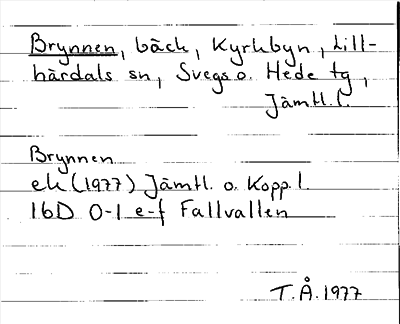 Brynnen, bäck, Kyrkbyn, Lill-
härdals sn, Svegs o. Hede tg,
Jämtl. l.
Brynnen
ek (1977) Jämtl. o. Kopp. l.
16D 0-1 e-f Fallvallen
T.Å. 1977